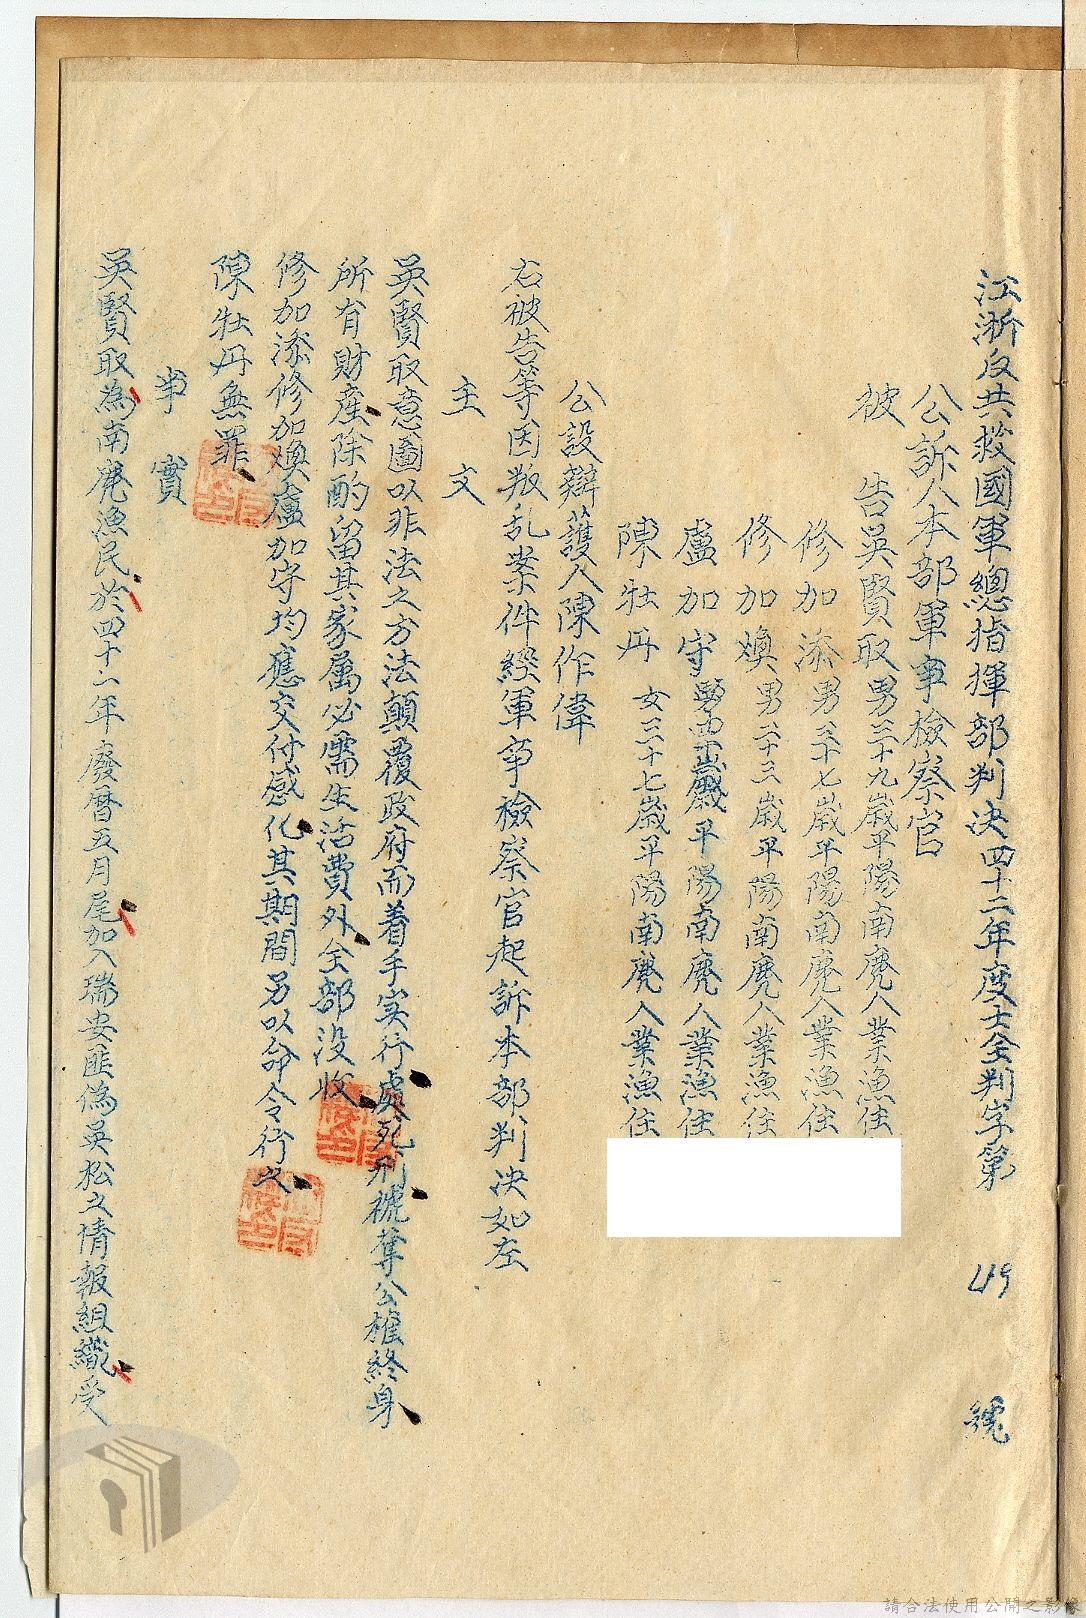 江浙反共救國軍總指揮部判决四十二年度士全判字第 119 號
公訴人本部軍事檢察官
被 告吳賢取男三十九歲平陽南麂人業漁住
修加添男三十七歲平陽南麂人業漁住
修加煥男二十三歲平陽南麂人業漁住
盧加守男歲平陽南麂人業漁住
陳牡丹 女三十七歲平陽南麂人業漁住
公設辯護人陳作偉
右被告等因叛乱業件經軍事檢察官起訴本部判决如左
主 文
吳賢取意圖以非法之方法顛覆政府而着手实行處死刑褫奪公權終身
所有財產除酌留其家屬必需生活費外全部没收
修加添修加煥盧加守均應交付感化其期間另以命令行之
陳牡丹無罪
事 實
吳賢取為南麂漁民於四十一年廢曆五月尾加入瑞安匪偽吳松之情報組織受
請合法使用公開之影像